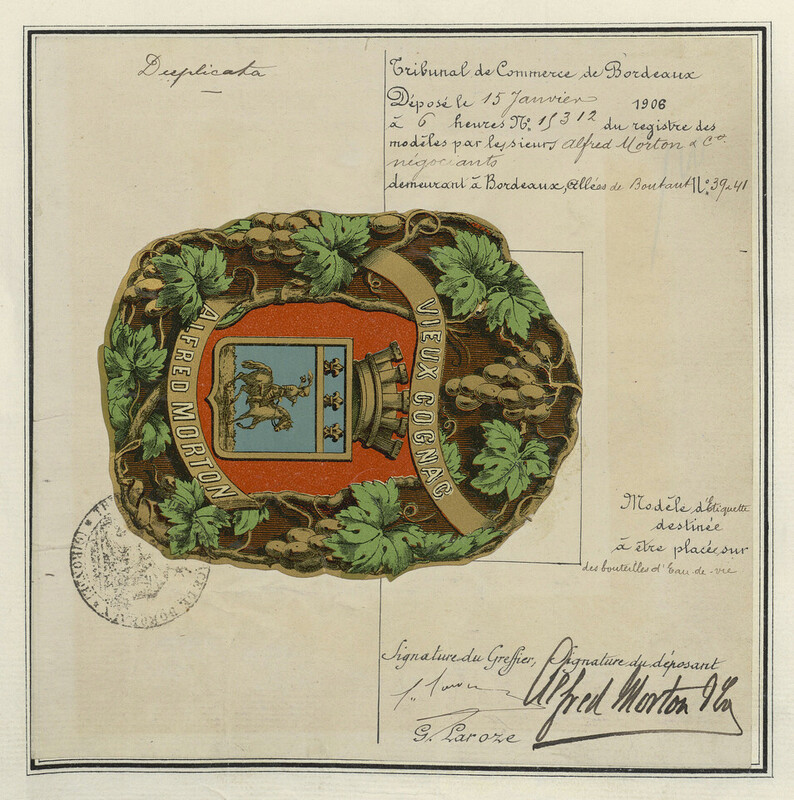 Duplicata
Tribunal de Commerce de Bordeaux
Déposé le 15 Janvier 1906
à 6 heures N° 15312 du registre des
modèles par les sieurs Alfred Morton & Cie
négociants
demeurant à Bordeaux, Allées de Boutaut N° 39 & 41
VIEUX COGNAC
ALFRED MORTON
Modèle d'Etiquette
destinée
à être placée sur
des bouteilles d'Eau-de-vie
DE BORDEAUX
Signature du Greffier, Signature du déposant
Alfred Morton & Co
G. Laroze